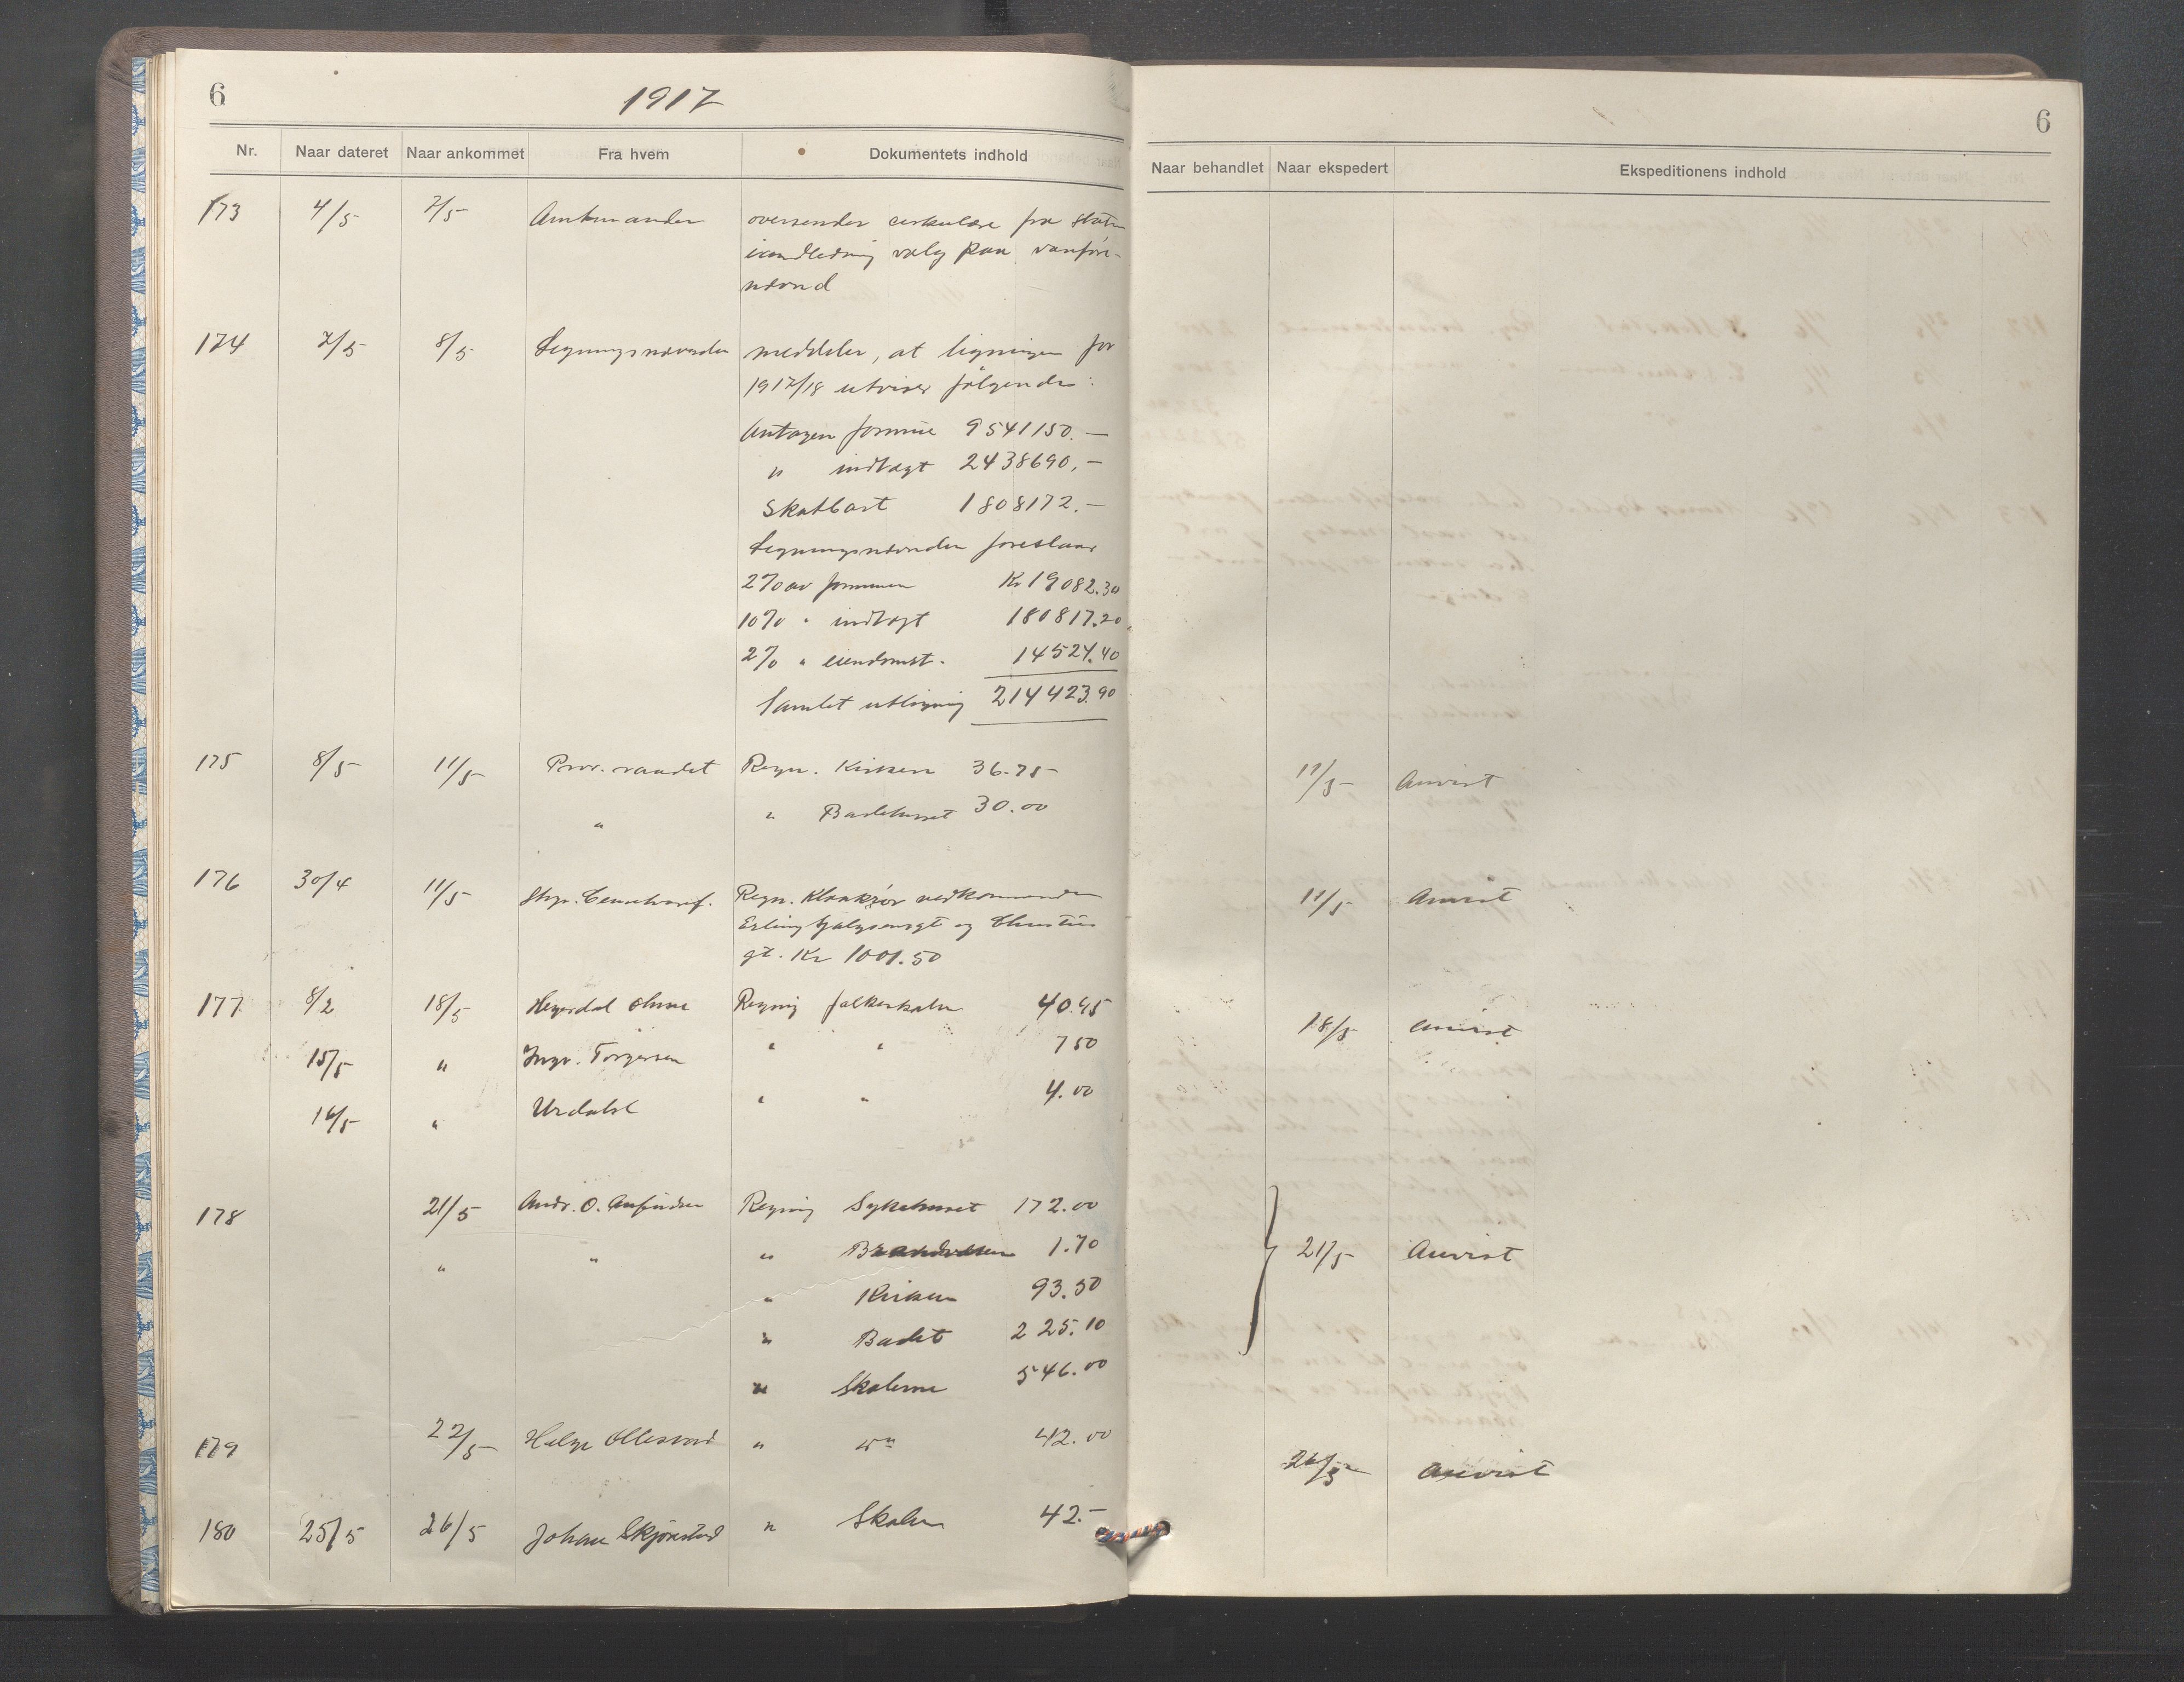 6
1917
Nr. Naar dateret Naar ankommet Fra hvem Dokumentets indhold
173 4/5 7/5 Amtmanden oversender cirkulære fra Stats
valg paa vanføre-
nævnd
174 7/5 8/5 Ligningsnævnden meddeler, at ligningen for
1917/18 utviser følgende:
Antagen formue 9541150.—
" indtægt 2438690.—
Skatbart 1808172.—
Ligningsnævnden foreslaar
2‰ av formuen Kr 19082.30
10% " indtægt 180817.20
2‰ " eiendomst. 14524.40
Samlet utligning 214423.90
175 8/5 11/5 Prov. raadet Regn. Kirken 36.75
" " Badehuset 30.00
176 30/4 11/5 Stgr. Cementvaref. Regn. Kloakrør vedkommende
Erling Skjalgsonsgt og
gt. Kr 1001.50
177 8/2 18/5 Hegerdal Regning folkeskolen 40.45
15/5 " Ingv. Torgersen " " 7 50
16/5 " Urdahl " " 4.00
178 21/5 Andr. O. Anfindsen Regning Sykehuset 172.00
" " " Brandvæsen 1.70
" Kirken 93.50
" Badet 225.10
" Skolerne 546.00
179 22/5 Helge Ollestad " " 42.00
180 25/5 26/5 Johan Skjørestad " Skolen 42.—
6
Naar behandlet Naar ekspedert Ekspeditionens indhold
11/5 Anvist
11/5 Anvist
18/5 Anvist
21/5 Anvist
26/5 Anvist